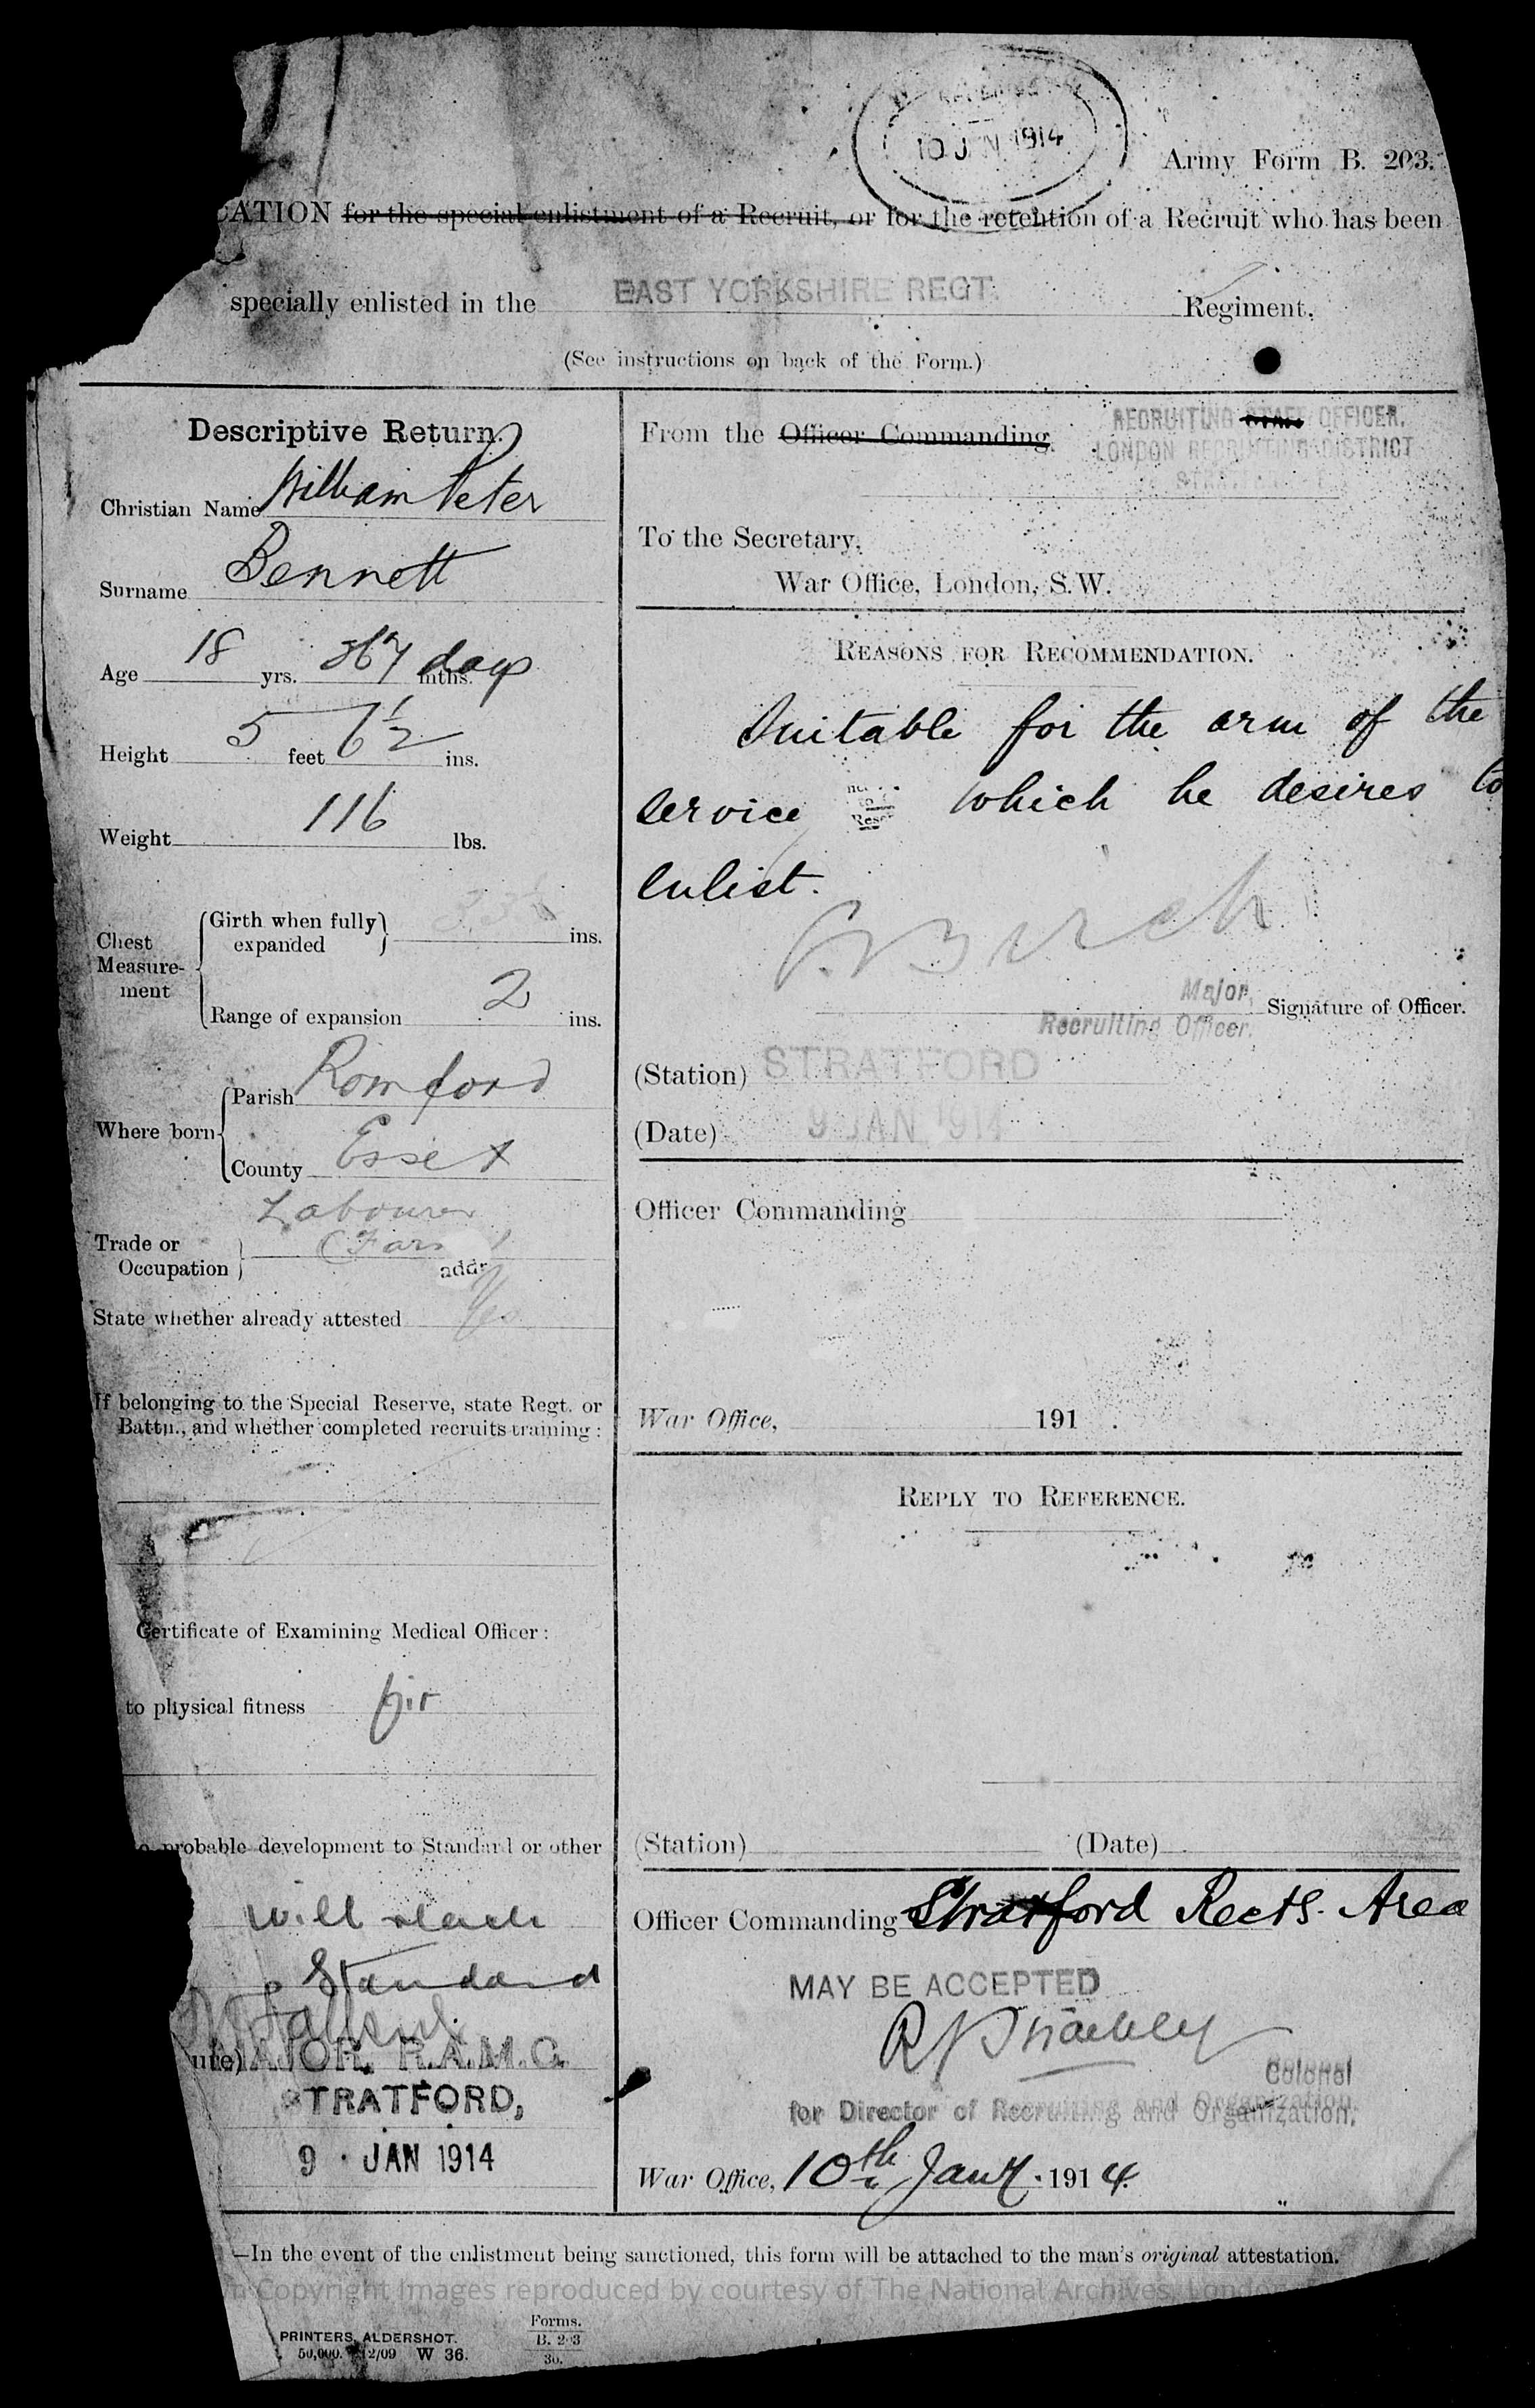 10 JAN 1914
Army Form B. 203.
ATION for the special enlistment of a Recruit, or for the retention of a Recruit who has been
specially enlisted in the EAST YORKSHIRE REGT. Regiment.
(See instructions on back of the Form.)
Descriptive Return.
Christian Name William Peter
Surname Bennett
Age 18 yrs. 367 days mths.
Height 5 feet 6½ ins.
Weight 116 lbs.
Chest Measure-ment
Girth when fully expanded ins.
Range of expansion 2 ins.
Where born
Parish Romford
County Essex
Labourer
Trade or Occupation (Farm)
addr
State whether already attested Yes
If belonging to the Special Reserve, state Regt. or
Battn., and whether completed recruits training:
Certificate of Examining Medical Officer:
to physical fitness fit
probable development to Standard or other
will reach
Standard
ure) MAJOR. R.A.M.C.
STRATFORD,
9 JAN 1914
From the Officer Commanding
RECRUITING STAFF OFFICER.
LONDON RECRUITING DISTRICT
To the Secretary,
War Office, London, S.W.
REASONS FOR RECOMMENDATION.
Suitable for the arm of the
service which he desires to
enlist.
Birch
Major,
Recruiting Officer.
Signature of Officer.
(Station) STRATFORD
(Date) 9 JAN 1914
Officer Commanding
War Office, 191 .
REPLY TO REFERENCE.
(Station) (Date)
Officer Commanding Stratford Rectg. Area
MAY BE ACCEPTED
Colonel
for Director of Recruiting and Organization.
War Office, 10th Jany. 1914.
—In the event of the enlistment being sanctioned, this form will be attached to the man's original attestation.
n Copyright Images reproduced by courtesy of The National Archives, London
PRINTERS, ALDERSHOT.
50,000. 12/09 W 36.
Forms.
B. 203
30.